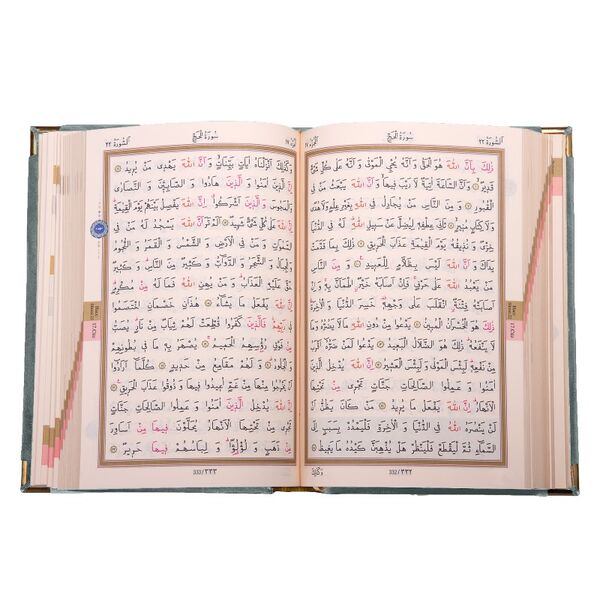 اَلسُّورَةُ ٢٢ سُورَةُ الْحَجِّ اَلْجُزْءُ ١٧
ذٰلِكَ بِاَنَّ اللّٰهَ هُوَ الْحَقُّ وَاَنَّهُ يُحْيِ الْمَوْتٰى وَاَنَّهُ عَلٰى كُلِّ شَيْءٍ
قَدِيرٌ وَاَنَّ السَّاعَةَ اٰتِيَةٌ لَا رَيْبَ فِيهَا وَاَنَّ اللّٰهَ يَبْعَثُ مَنْ فِي
الْقُبُورِ وَمِنَ النَّاسِ مَنْ يُجَادِلُ فِي اللّٰهِ بِغَيْرِ عِلْمٍ وَلَا هُدًى
وَلَا كِتَابٍ مُنِيرٍ ثَانِيَ عِطْفِهِ لِيُضِلَّ عَنْ سَبِيلِ اللّٰهِ لَهُ فِي الدُّنْيَا
خِزْيٌ وَنُذِيقُهُ يَوْمَ الْقِيٰمَةِ عَذَابَ الْحَرِيقِ ذٰلِكَ بِمَا قَدَّمَتْ
يَدَاكَ وَاَنَّ اللّٰهَ لَيْسَ بِظَلَّامٍ لِلْعَبِيدِ وَمِنَ النَّاسِ مَنْ
يَعْبُدُ اللّٰهَ عَلٰى حَرْفٍ فَاِنْ اَصَابَهُ خَيْرٌ اطْمَاَنَّ بِهِ وَاِنْ
اَصَابَتْهُ فِتْنَةٌ انْقَلَبَ عَلٰى وَجْهِهِ خَسِرَ الدُّنْيَا وَالْاٰخِرَةَ
ذٰلِكَ هُوَ الْخُسْرَانُ الْمُبِينُ يَدْعُوا مِنْ دُونِ اللّٰهِ مَا لَا يَضُرُّهُ وَمَا
لَا يَنْفَعُهُ ذٰلِكَ هُوَ الضَّلَالُ الْبَعِيدُ يَدْعُوا لَمَنْ ضَرُّهُ اَقْرَبُ
مِنْ نَفْعِهِ لَبِئْسَ الْمَوْلٰى وَلَبِئْسَ الْعَشِيرُ اِنَّ اللّٰهَ يُدْخِلُ
الَّذِينَ اٰمَنُوا وَعَمِلُوا الصَّالِحَاتِ جَنَّاتٍ تَجْرِي مِنْ تَحْتِهَا
الْاَنْهَارُ اِنَّ اللّٰهَ يَفْعَلُ مَا يُرِيدُ مَنْ كَانَ يَظُنُّ اَنْ
لَنْ يَنْصُرَهُ اللّٰهُ فِي الدُّنْيَا وَالْاٰخِرَةِ فَلْيَمْدُدْ بِسَبَبٍ اِلَى
السَّمَاءِ ثُمَّ لْيَقْطَعْ فَلْيَنْظُرْ هَلْ يُذْهِبَنَّ كَيْدُهُ مَا يَغِيظُ
332/٣٣٢
وَكَذٰلِكَ
اَلسُّورَةُ ٢٢ سُورَةُ الْحَجِّ اَلْجُزْءُ ١٧
وَكَذٰلِكَ اَنْزَلْنَاهُ اٰيَاتٍ بَيِّنَاتٍ وَاَنَّ اللّٰهَ يَهْدِي مَنْ يُرِيدُ
اِنَّ الَّذِينَ اٰمَنُوا وَالَّذِينَ هَادُوا وَالصَّابِـِٔينَ وَالنَّصَارٰى
وَالْمَجُوسَ وَالَّذِينَ اَشْرَكُوا اِنَّ اللّٰهَ يَفْصِلُ بَيْنَهُمْ يَوْمَ الْقِيٰمَةِ
اِنَّ اللّٰهَ عَلٰى كُلِّ شَيْءٍ شَهِيدٌ اَلَمْ تَرَ اَنَّ اللّٰهَ يَسْجُدُ لَهُ مَنْ فِي
السَّمٰوَاتِ وَمَنْ فِي الْاَرْضِ وَالشَّمْسُ وَالْقَمَرُ وَالنُّجُومُ
وَالْجِبَالُ وَالشَّجَرُ وَالدَّوَابُّ وَكَثِيرٌ مِنَ النَّاسِ وَكَثِيرٌ
حَقَّ عَلَيْهِ الْعَذَابُ وَمَنْ يُهِنِ اللّٰهُ فَمَا لَهُ مِنْ مُكْرِمٍ
اِنَّ اللّٰهَ يَفْعَلُ مَا يَشَاءُ هٰذَانِ خَصْمَانِ اخْتَصَمُوا
فِي رَبِّهِمْ فَالَّذِينَ كَفَرُوا قُطِّعَتْ لَهُمْ ثِيَابٌ مِنْ نَارٍ يُصَبُّ
مِنْ فَوْقِ رُؤُسِهِمُ الْحَمِيمُ يُصْهَرُ بِهِ مَا فِي بُطُونِهِمْ
وَالْجُلُودُ وَلَهُمْ مَقَامِعُ مِنْ حَدِيدٍ كُلَّمَا اَرَادُوا
اَنْ يَخْرُجُوا مِنْهَا مِنْ غَمٍّ اُعِيدُوا فِيهَا وَذُوقُوا عَذَابَ الْحَرِيقِ
اِنَّ اللّٰهَ يُدْخِلُ الَّذِينَ اٰمَنُوا وَعَمِلُوا الصَّالِحَاتِ جَنَّاتٍ
تَجْرِي مِنْ تَحْتِهَا الْاَنْهَارُ يُحَلَّوْنَ فِيهَا مِنْ اَسَاوِرَ
مِنْ ذَهَبٍ وَلُؤْلُؤًا وَلِبَاسُهُمْ فِيهَا حَرِيرٌ
333/٣٣٣
17.Cüz
17.Cüz